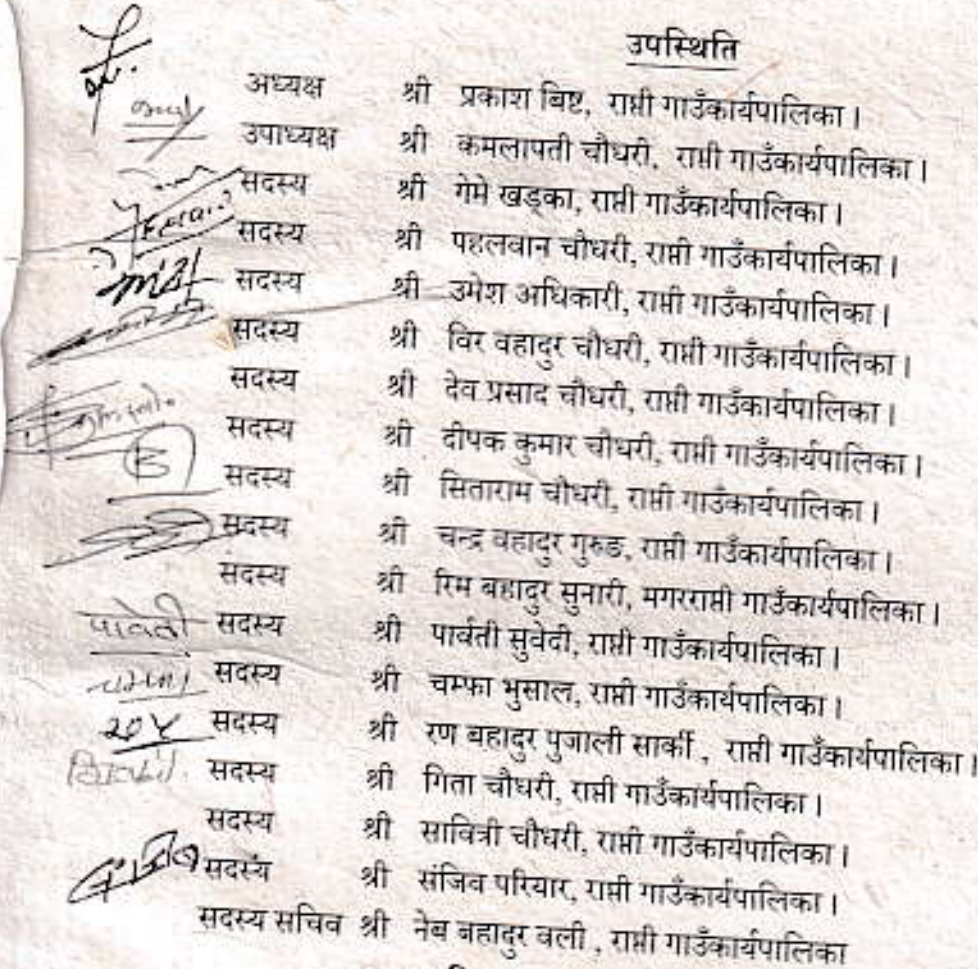 उपस्थिति
अध्यक्ष श्री प्रकाश बिष्ट, राप्ती गाउँकार्यपालिका।
उपाध्यक्ष श्री कमलापती चौधरी, राप्ती गाउँकार्यपालिका।
सदस्य श्री गेमे खड्का, राप्ती गाउँकार्यपालिका।
सदस्य श्री पहलवान चौधरी, राप्ती गाउँकार्यपालिका।
सदस्य श्री उमेश अधिकारी, राप्ती गाउँकार्यपालिका।
सदस्य श्री विर वहादुर चौधरी, राप्ती गाउँकार्यपालिका।
सदस्य श्री देव प्रसाद चौधरी, राप्ती गाउँकार्यपालिका।
सदस्य श्री दीपक कुमार चौधरी, राप्ती गाउँकार्यपालिका।
सदस्य श्री सिताराम चौधरी, राप्ती गाउँकार्यपालिका।
सदस्य श्री चन्द्र वहादुर गुरुङ, राप्ती गाउँकार्यपालिका।
सदस्य श्री रिम बहादुर सुनारी, मगरराप्ती गाउँकार्यपालिका।
पार्वती सदस्य श्री पार्वती सुवेदी, राप्ती गाउँकार्यपालिका।
चम्फा सदस्य श्री चम्फा भुसाल, राप्ती गाउँकार्यपालिका।
सदस्य श्री रण बहादुर पुजाली सार्की , राप्ती गाउँकार्यपालिका।
सदस्य श्री गिता चौधरी, राप्ती गाउँकार्यपालिका।
सदस्य श्री सावित्री चौधरी, राप्ती गाउँकार्यपालिका।
सदस्य श्री संजिव परियार, राप्ती गाउँकार्यपालिका।
सदस्य सचिव श्री नेब बहादुर वली , राप्ती गाउँकार्यपालिका